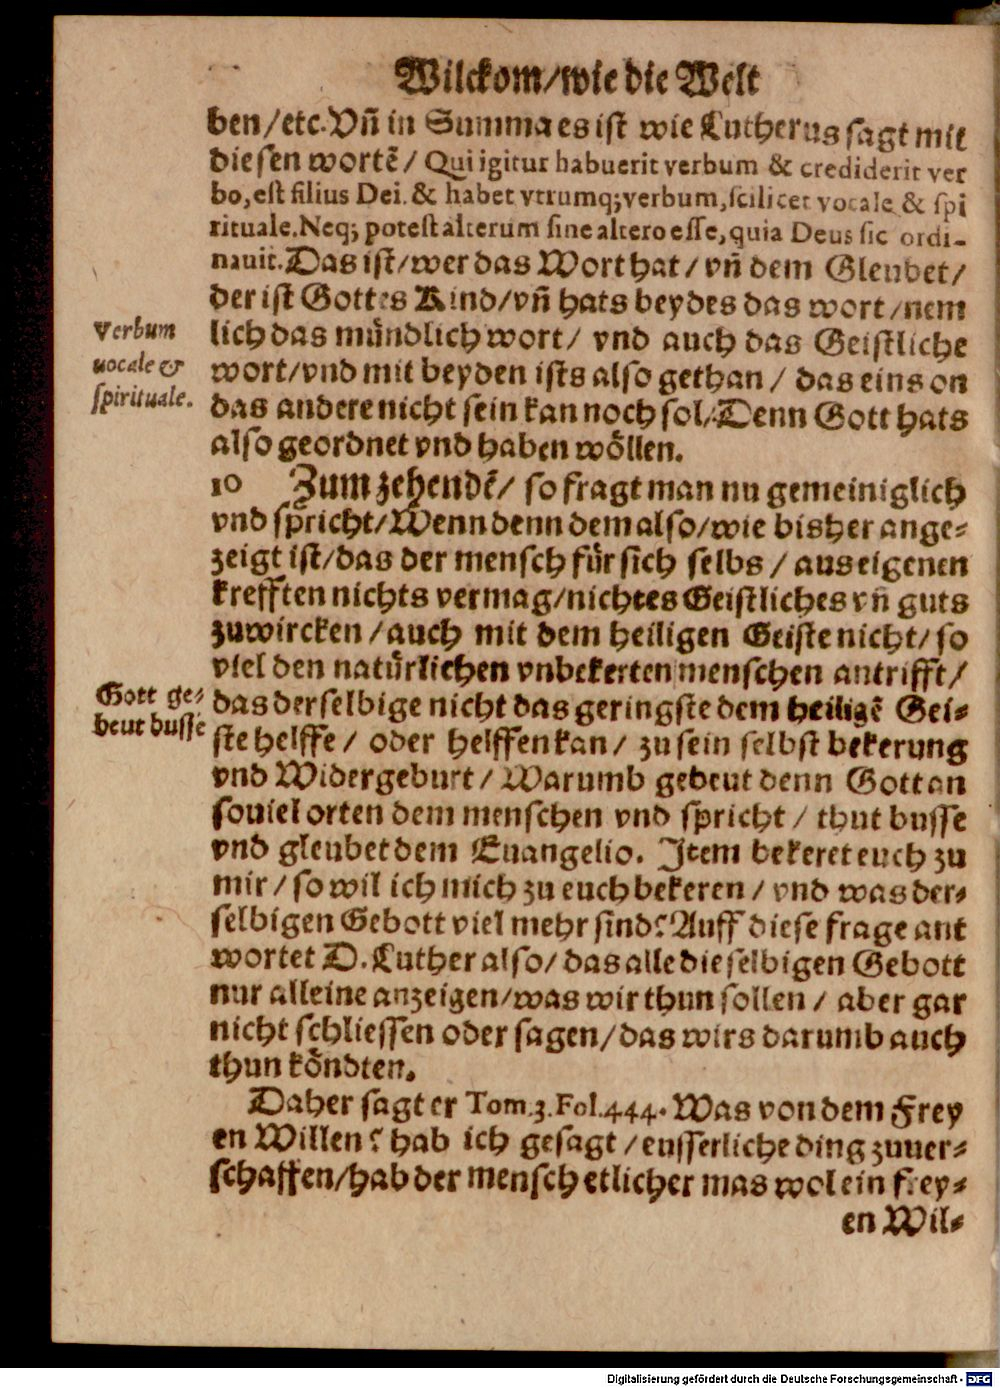 Wilckom/wie die Welt
ben/etc. Vñ in Summa es ist wie Lutherus sagt mit
diesen wortẽ/ Qui igitur habuerit verbum & crediderit ver
bo, est filius Dei. & habet vtrumq; verbum, scilicet vocale & spi
rituale. Neq; potest alterum sine altero esse, quia Deus sic ordi-
nauit. Das ist/wer das Wort hat/ vñ dem Gleubet/
der ist Gottes Kind/vñ hats beydes das wort/nem
lich das mündlich wort/ vnd auch das Geistliche
wort/vnd mit beyden ists also gethan/ das eins on
das andere nicht sein kan noch sol/Denn Gott hats
also geordnet vnd haben wöllen.
Verbum
uocale &
spirituale.
10 Zum zehendẽ/ so fragt man nu gemeiniglich
vnd spricht/Wenn denn dem also/wie bisher ange-
zeigt ist/das der mensch für sich selbs/ aus eigenen
krefften nichts vermag/nichtes Geistliches vñ guts
zuwircken/auch mit dem heiligen Geiste nicht/ so
viel den natürlichen vnbekerten menschen antrifft/
das derselbige nicht das geringste dem heiligẽ Gei-
ste helffe/ oder helffen kan/ zu sein selbst bekerung
vnd Widergeburt/ Warumb gebeut denn Gott an
souiel orten dem menschen vnd spricht/ thut busse
vnd gleubet dem Euangelio. Item bekeret euch zu
mir/ so wil ich mich zu euch bekeren/ vnd was der-
selbigen Gebott viel mehr sind? Auff diese frage ant
wortet D. Luther also/ das alle dieselbigen Gebott
nur alleine anzeigen/was wir thun sollen/ aber gar
nicht schliessen oder sagen/das wirs darumb auch
thun köndten.
Gott ge-
beut busse
Daher sagt er Tom.3. Fol.444. Was von dem Frey
en Willen? hab ich gesagt/eusserliche ding zuuer-
schaffen/hab der mensch etlicher mas wol ein frey-
en Wil-
Digitalisierung gefördert durch die Deutsche Forschungsgemeinschaft - DFG